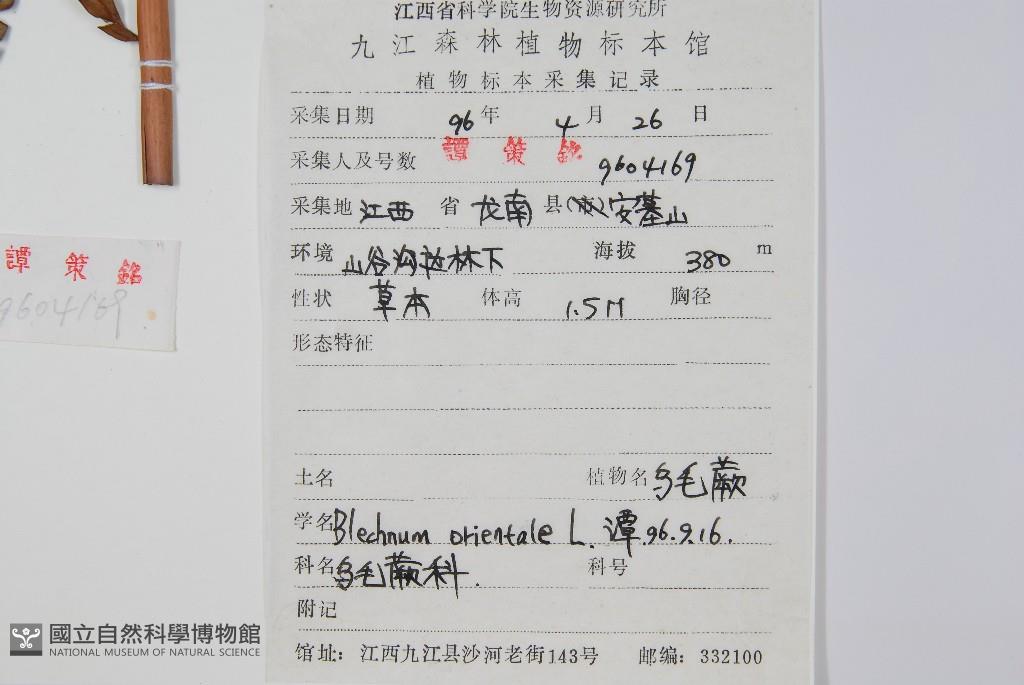 江西省科学院生物资源研究所
九江森林植物标本馆
植物标本采集记录
采集日期 96年 4月 26日
采集人及号数 譚策銘 9604169
采集地 江西 省 龙南 县(市)安基山
环境 山谷沟边林下 海拔 380 m
性状 草本 体高 1.5M 胸径
形态特征
土名 植物名 乌毛蕨
学名 Blechnum orientale L. 谭.96.9.16.
科名 乌毛蕨科. 科号
附记
馆址：江西九江县沙河老街143号 邮编：332100
譚策銘
9604169
國立自然科學博物館
NATIONAL MUSEUM OF NATURAL SCIENCE